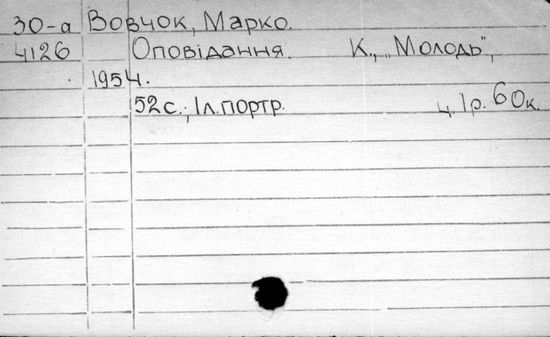 30-а Вовчок, Марко.
4126 Оповідання. К., „Молодь",
1954.
52с.; 1л.портр. ц. 1р. 60к.